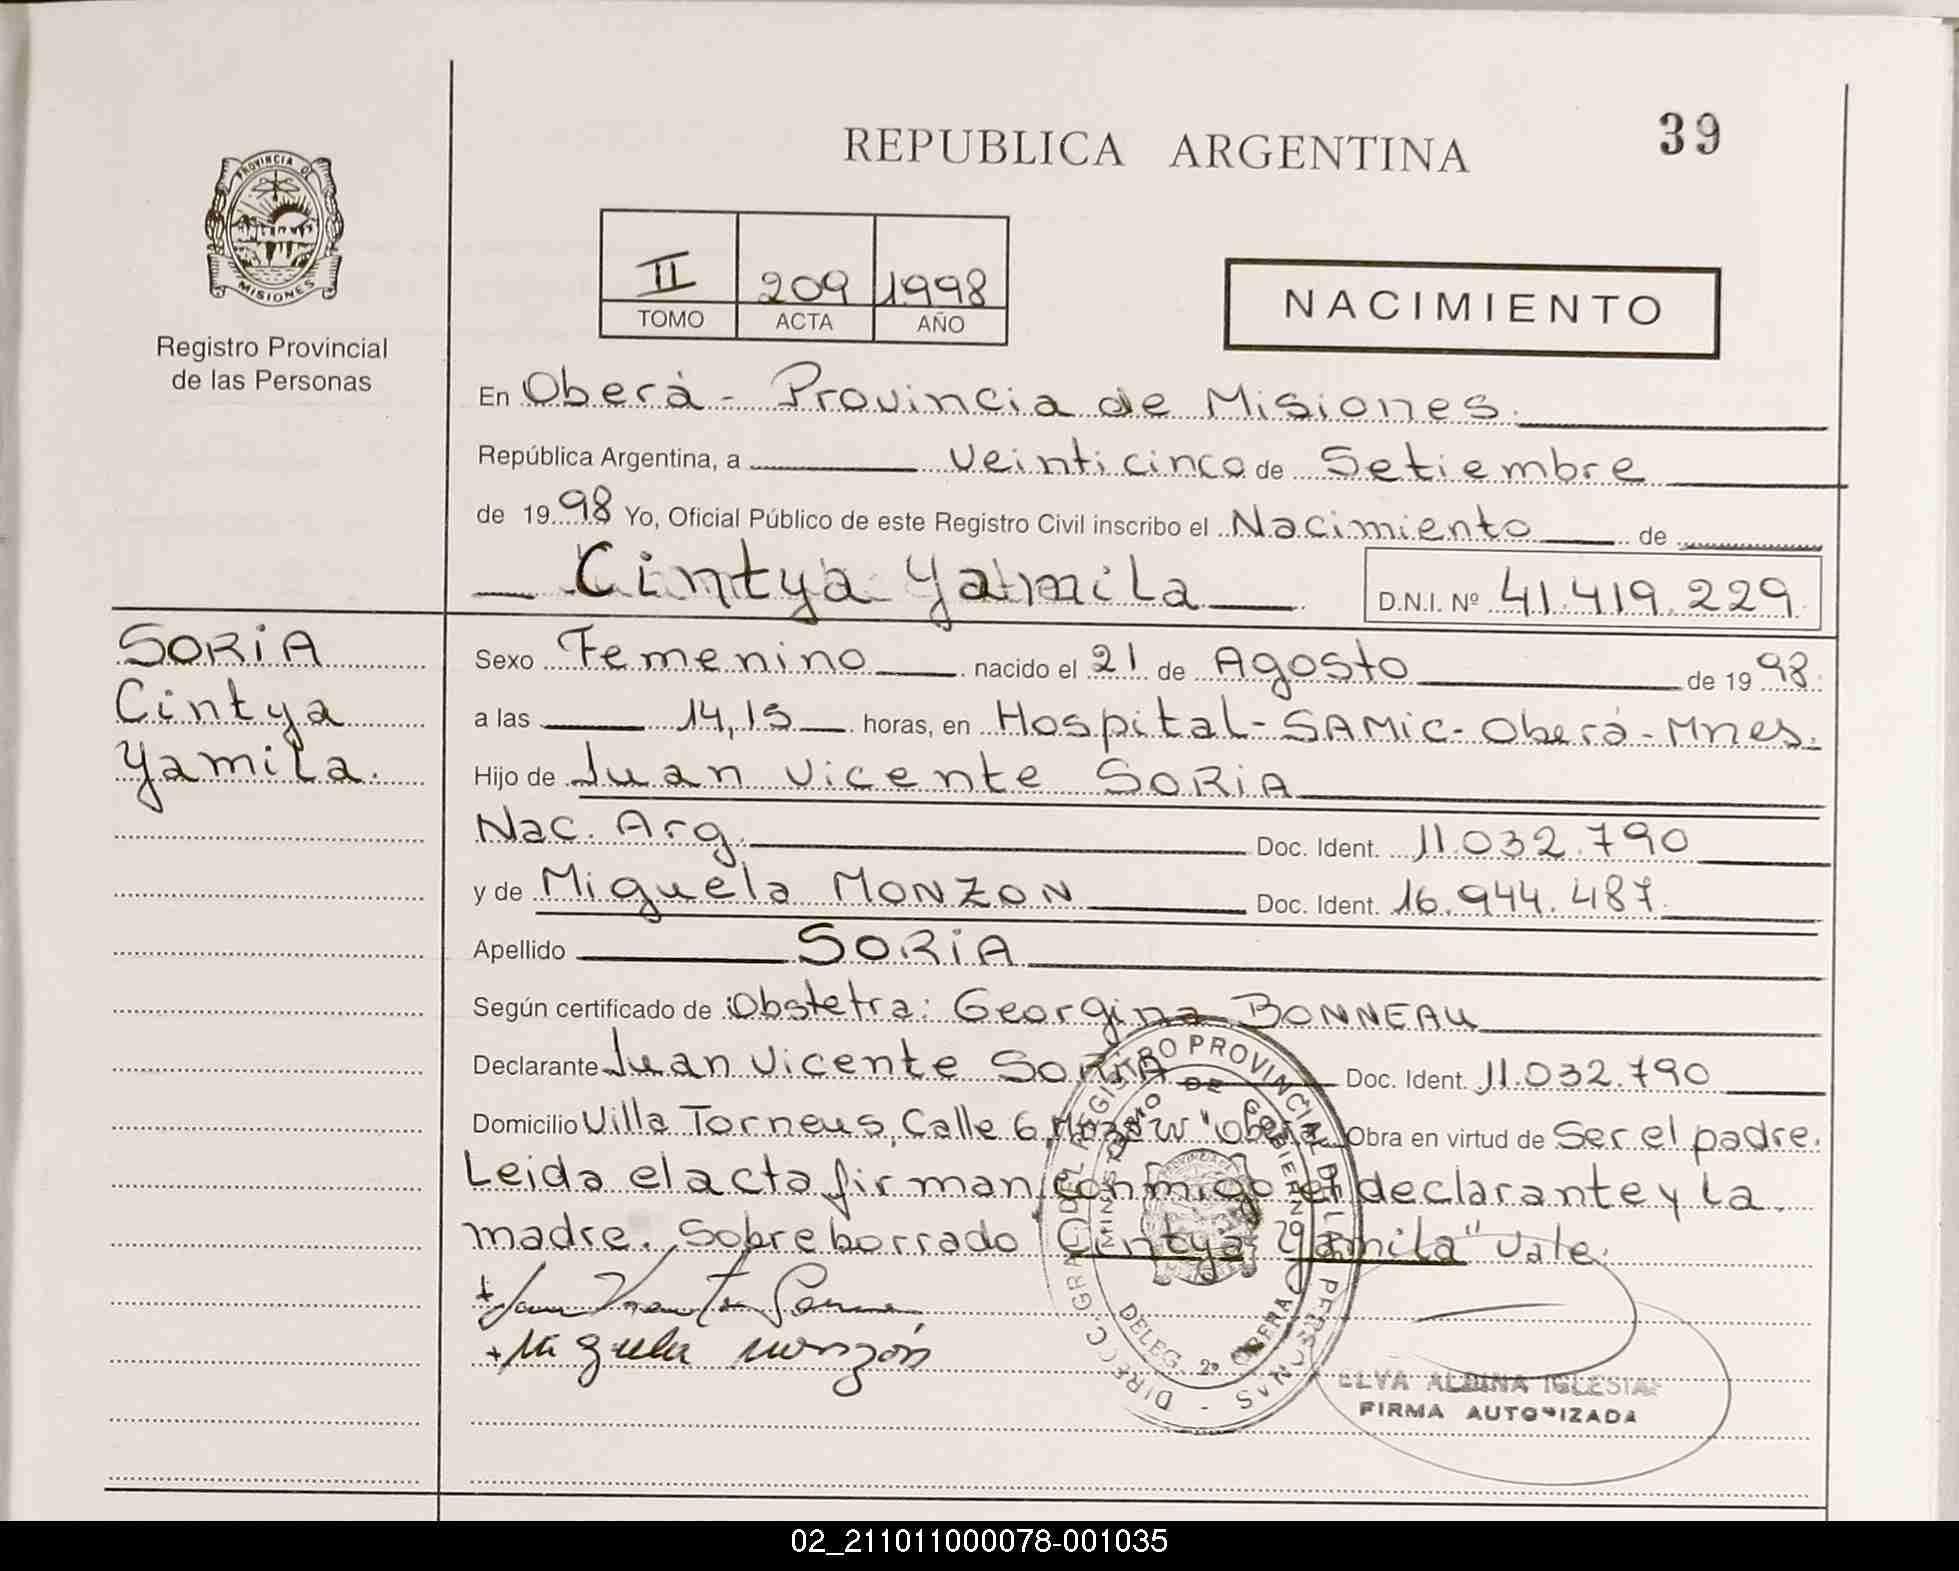 REPUBLICA ARGENTINA
39
PROVINCIA DE
MISIONES
Registro Provincial
de las Personas
II 209 1998
TOMO ACTA AÑO
NACIMIENTO
En Oberá - Provincia de Misiones.
República Argentina, a veinticinco de Setiembre
de 1998 Yo, Oficial Público de este Registro Civil inscribo el Nacimiento de
Cintya Yamila D.N.I. Nº 41.419.229
SORIA
Cintya
Yamila.
Sexo Femenino nacido el 21 de Agosto de 1998.
a las 14,15 horas, en Hospital-SAMIC-Oberá-Mnes.
Hijo de Juan Vicente SORIA
Nac. Arg. Doc. Ident. 11.032.790
y de Miguela MONZON Doc. Ident. 16.944.487.
Apellido SORIA
Según certificado de Obstetra: Georgina BONNEAU
Declarante Juan Vicente SORIA Doc. Ident. 11.032.790
Domicilio Villa Torneus, Calle 6, "Oberá Obra en virtud de Ser el padre.
Leida el acta firman conmigo el declarante y la
madre. Sobreborrado "Cintya Yamila" Vale.
Miguela monzón
DIRECC. GRAL. DEL REGISTRO PROVINCIAL DE LAS PERSONAS -
MINISTERIO DE GOBIERNO
DELEG. 2º OBERA
ELVA ALBINA IGLESIAS
FIRMA AUTORIZADA
02_211011000078-001035